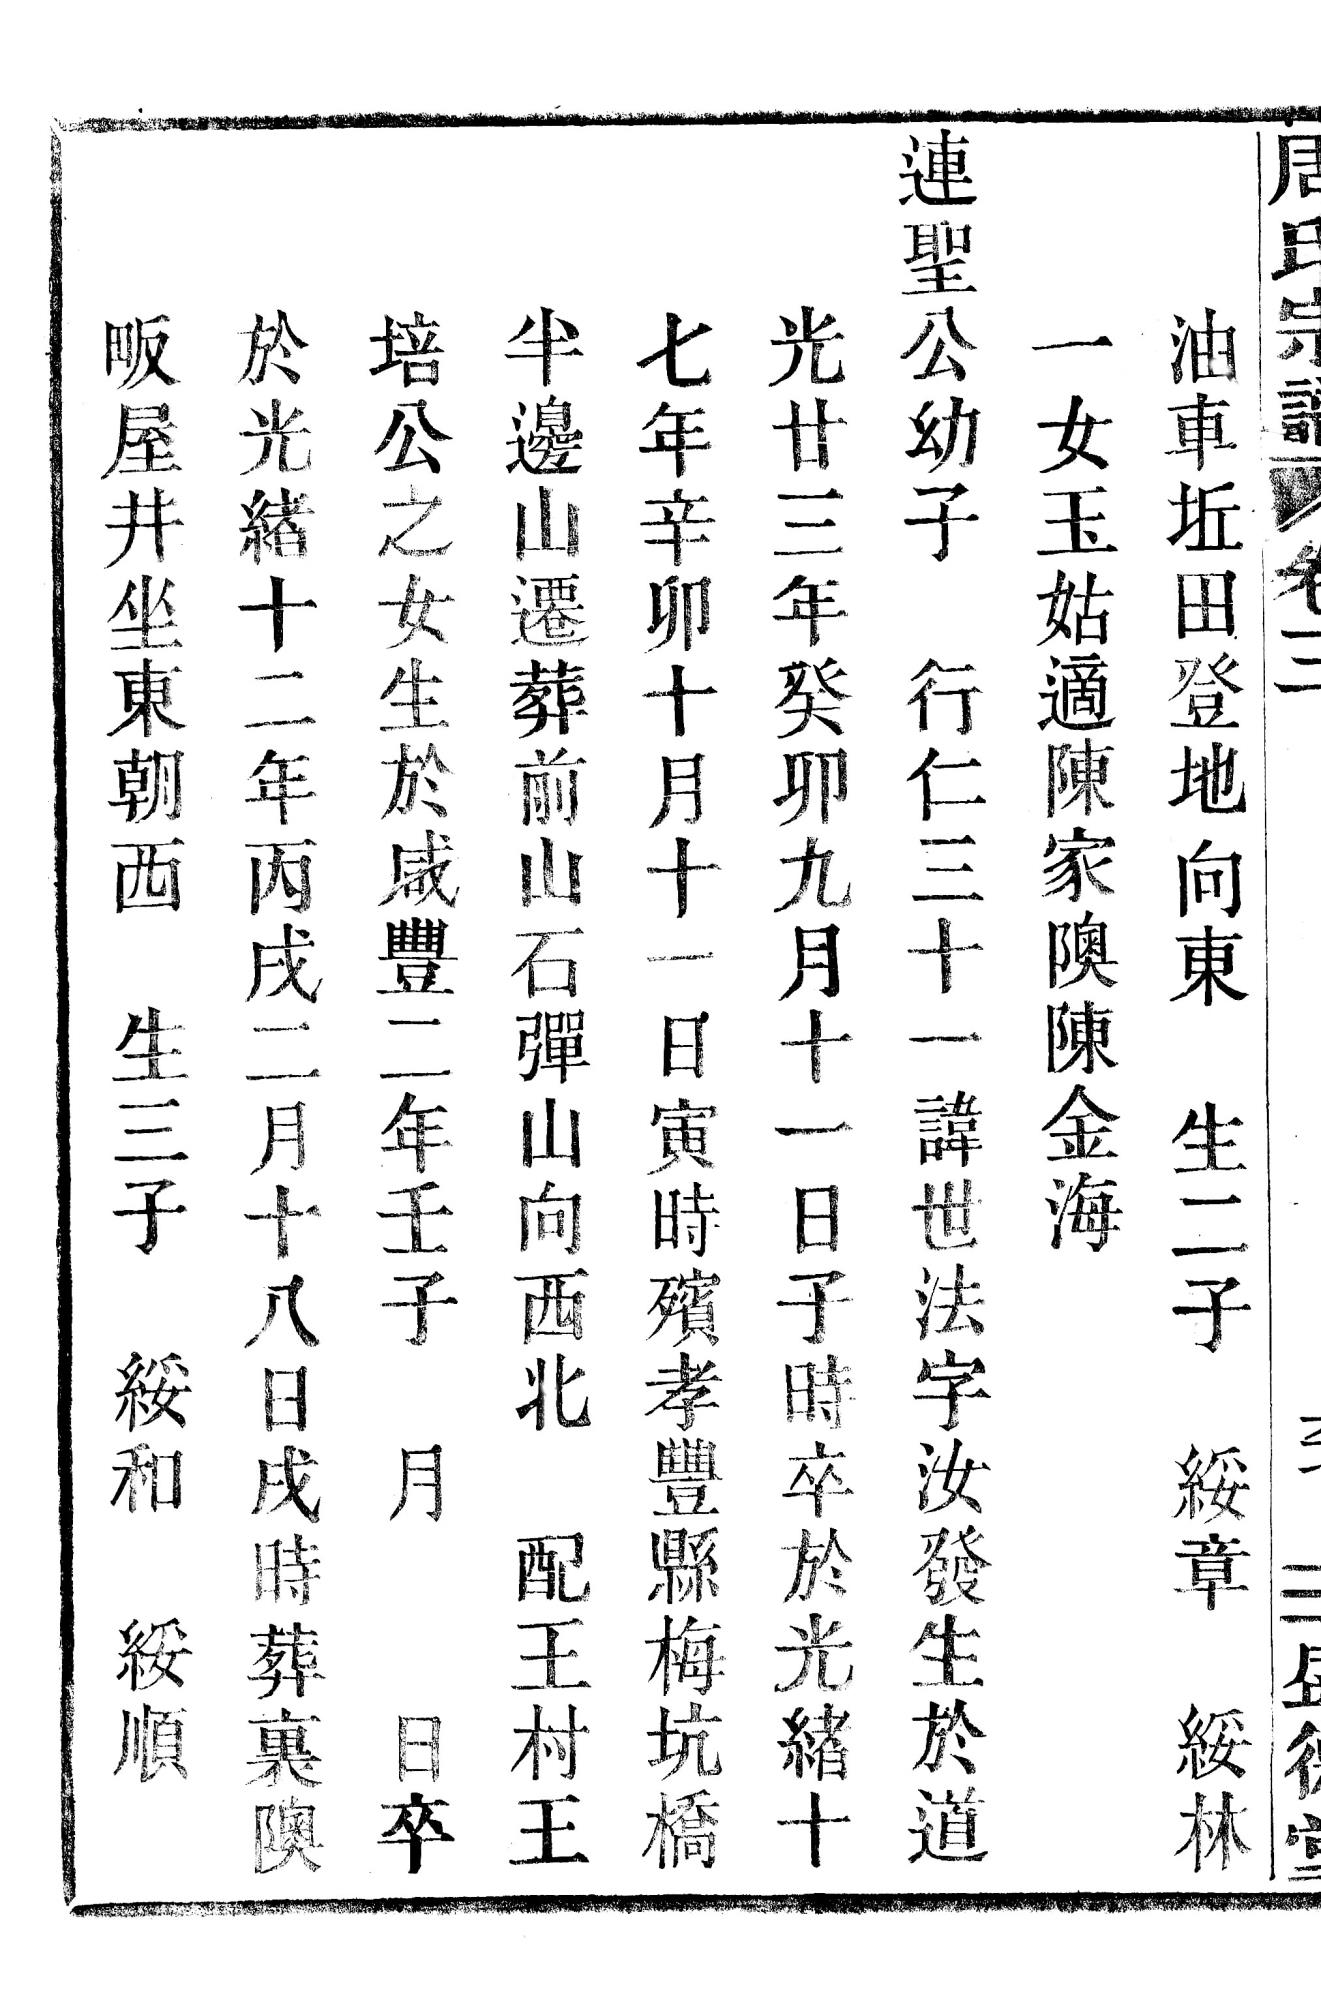 周氏宗譜 卷三 三 盛德堂
油車坵田登地向東 生二子 綏章 綏林
一女玉姑適陳家隩陳金海
連聖公幼子 行仁三十一諱世法字汝發生於道
光廿三年癸卯九月十一日子時卒於光緒十
七年辛卯十月十一日寅時殯孝豐縣梅坑橋
半邊山遷葬前山石彈山向西北 配王村王
培公之女生於咸豐二年壬子 月 日卒
於光緒十二年丙戌二月十八日戌時葬裏隩
畈屋井坐東朝西 生三子 綏和 綏順